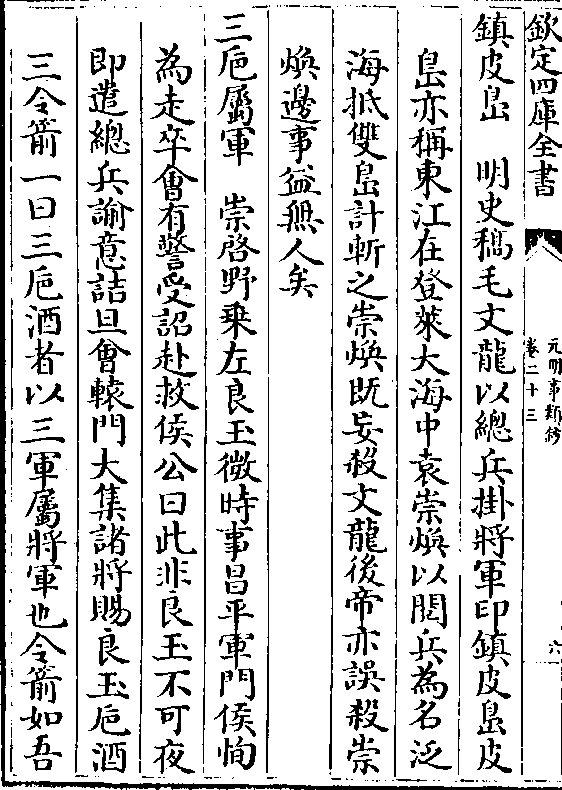 欽定四庫全書
元明事類鈔
卷二十三
六
鎮皮島　明史稿毛文龍以總兵掛將軍印鎮皮島皮
島亦稱東江在登萊大海中袁崇煥以閱兵為名泛
海抵雙島計斬之崇煥既妄殺文龍後帝亦誤殺崇
煥邊事益無人矣
三巵屬軍　崇啓野乗左良玉微時事昌平軍門侯恂
為走卒會有警受詔赴救侯公曰此非良玉不可夜
即遣總兵諭意詰旦會轅門大集諸將賜良玉巵酒
三令箭一曰三巵酒者以三軍屬將軍也令箭如吾